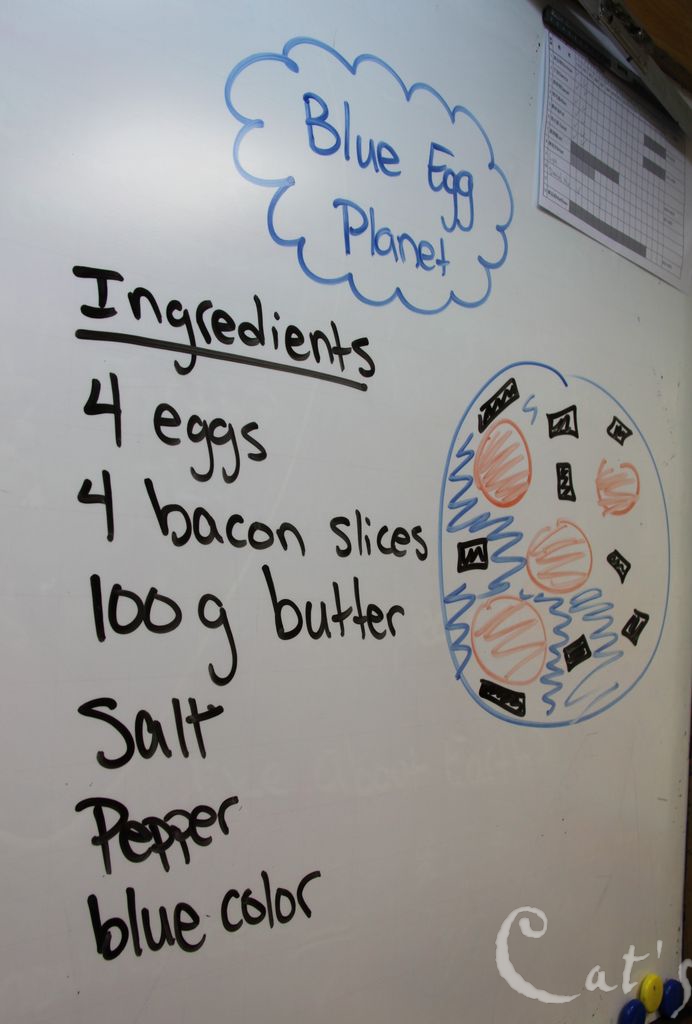 Blue Egg
Planet
Ingredients
4 eggs
4 bacon slices
100 g butter
Salt
Pepper
blue color
Cat's